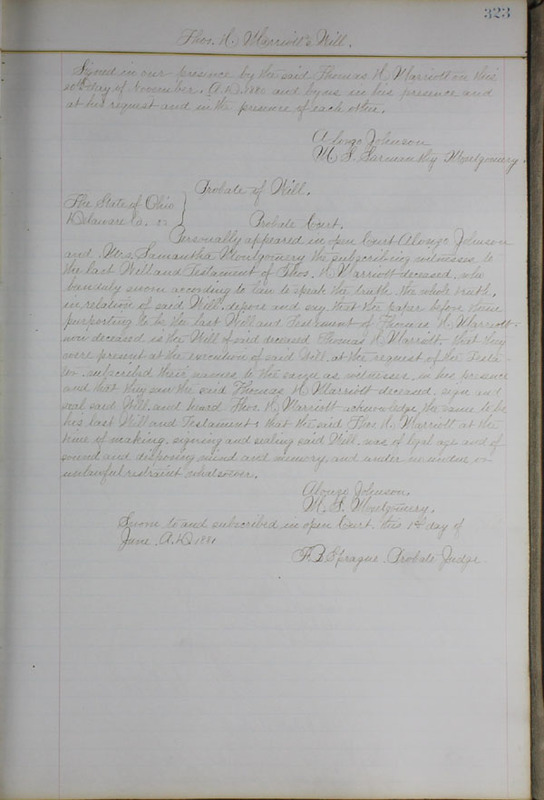 323
Thos. H. Marriott's Will.
Signed in our presence by the said Thomas H Marriott on this
10th day of November, A.D. 1880 and by us in his presence and
at his request and in the presence of each other.
Alonzo Johnson
M. S. Montgomery.
Probate of Will.
The State of Ohio
Delaware Co. ss
Probate Court.
Personally appeared in open Court Alonzo Johnson
and Mrs. Samantha Montgomery the subscribing witnesses to
the Last Will and Testament of Thos. H Marriott deceased, who
being duly sworn according to law to speak the truth the whole truth,
in relation of said Will, depose and say that the paper before them
purporting to be the last Will and Testament of Thomas H. Marriott
now deceased is the Will of said deceased Thomas H Marriott, that they
were present at the execution of said Will, at the request of the Testa-
tor subscribed their names to the same as witnesses, in his presence
and that they saw the said Thomas H Marriott deceased, sign and
seal said Will, and heard Thos. H. Marriott acknowledge the same to be
his last Will and Testament: that the said Thos H. Marriott at the
time of making, signing and sealing said Will, was of legal age and of
sound and disposing mind and memory, and under no undue or
unlawful restraint whatsoever.
Alonzo Johnson.
M. S. Montgomery.
Sworn to and subscribed in open Court. this 1st day of
June A.D 1881
F. B. Sprague. Probate Judge